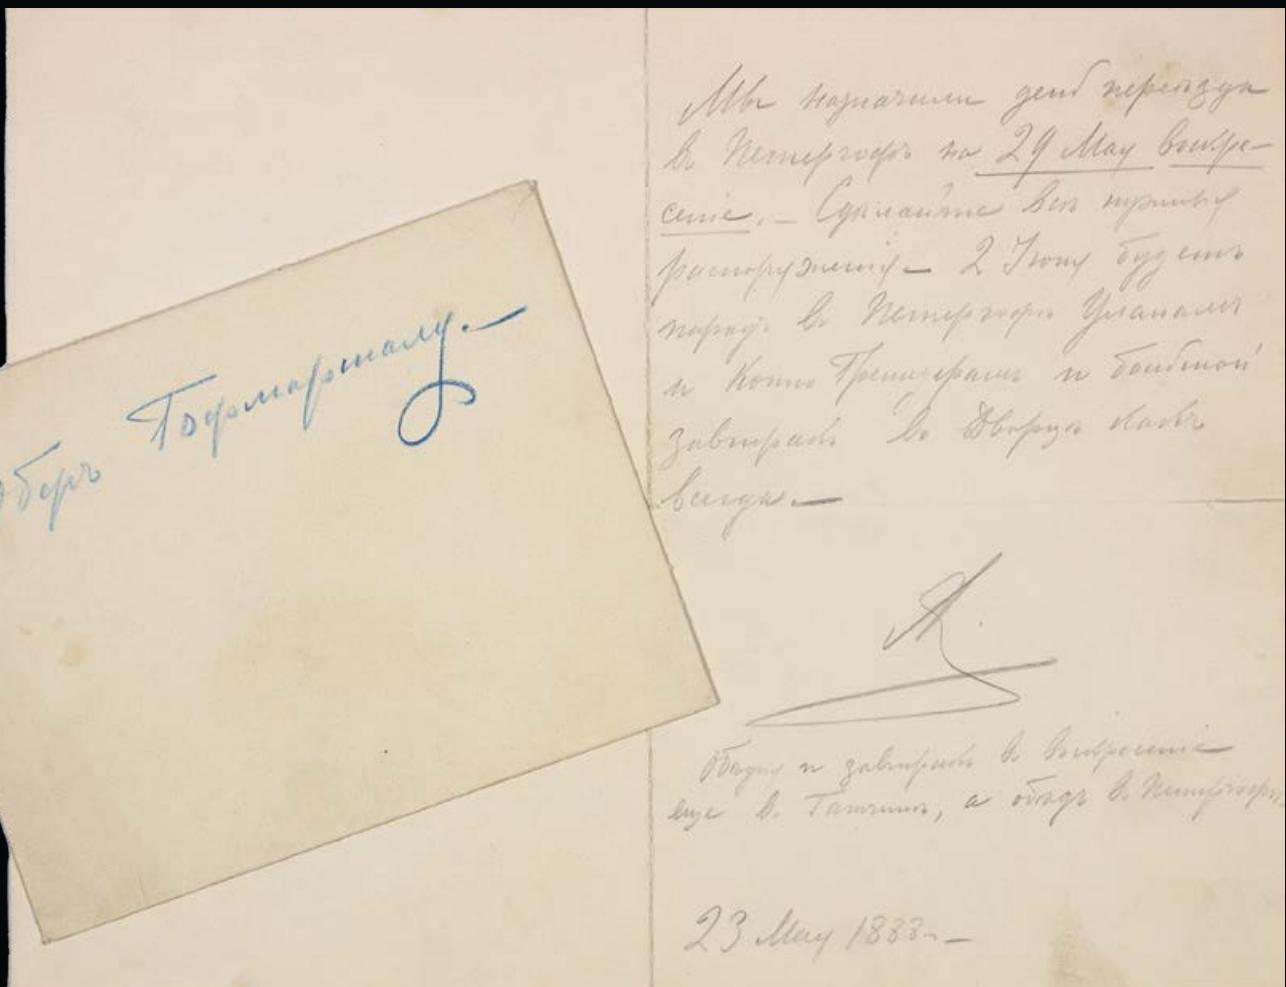 Оберъ Гофмаршалу. —
Мы назначили день переѣзда
въ Петергофъ на 29 Мая воскре-
сеніе. — Сдѣлайте всѣ нужныя
распоряженія — 2 Іюня будетъ
парадъ въ Петергофѣ Уланамъ
и Конно Гренадерамъ и большой
завтракъ во Дворцѣ какъ
всегда. —
А.
Обѣдня и завтракъ въ Воскресеніе
еще въ Гатчинѣ, а обѣдъ въ Петергофѣ,
23 Мая 1888 —